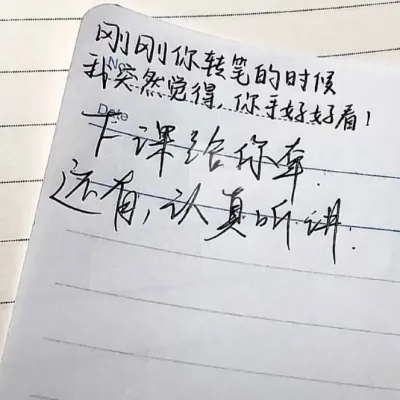 No.
刚刚你转笔的时候
我突然觉得，你手好好看！
Date
下课给你牵.
还有，认真听讲.